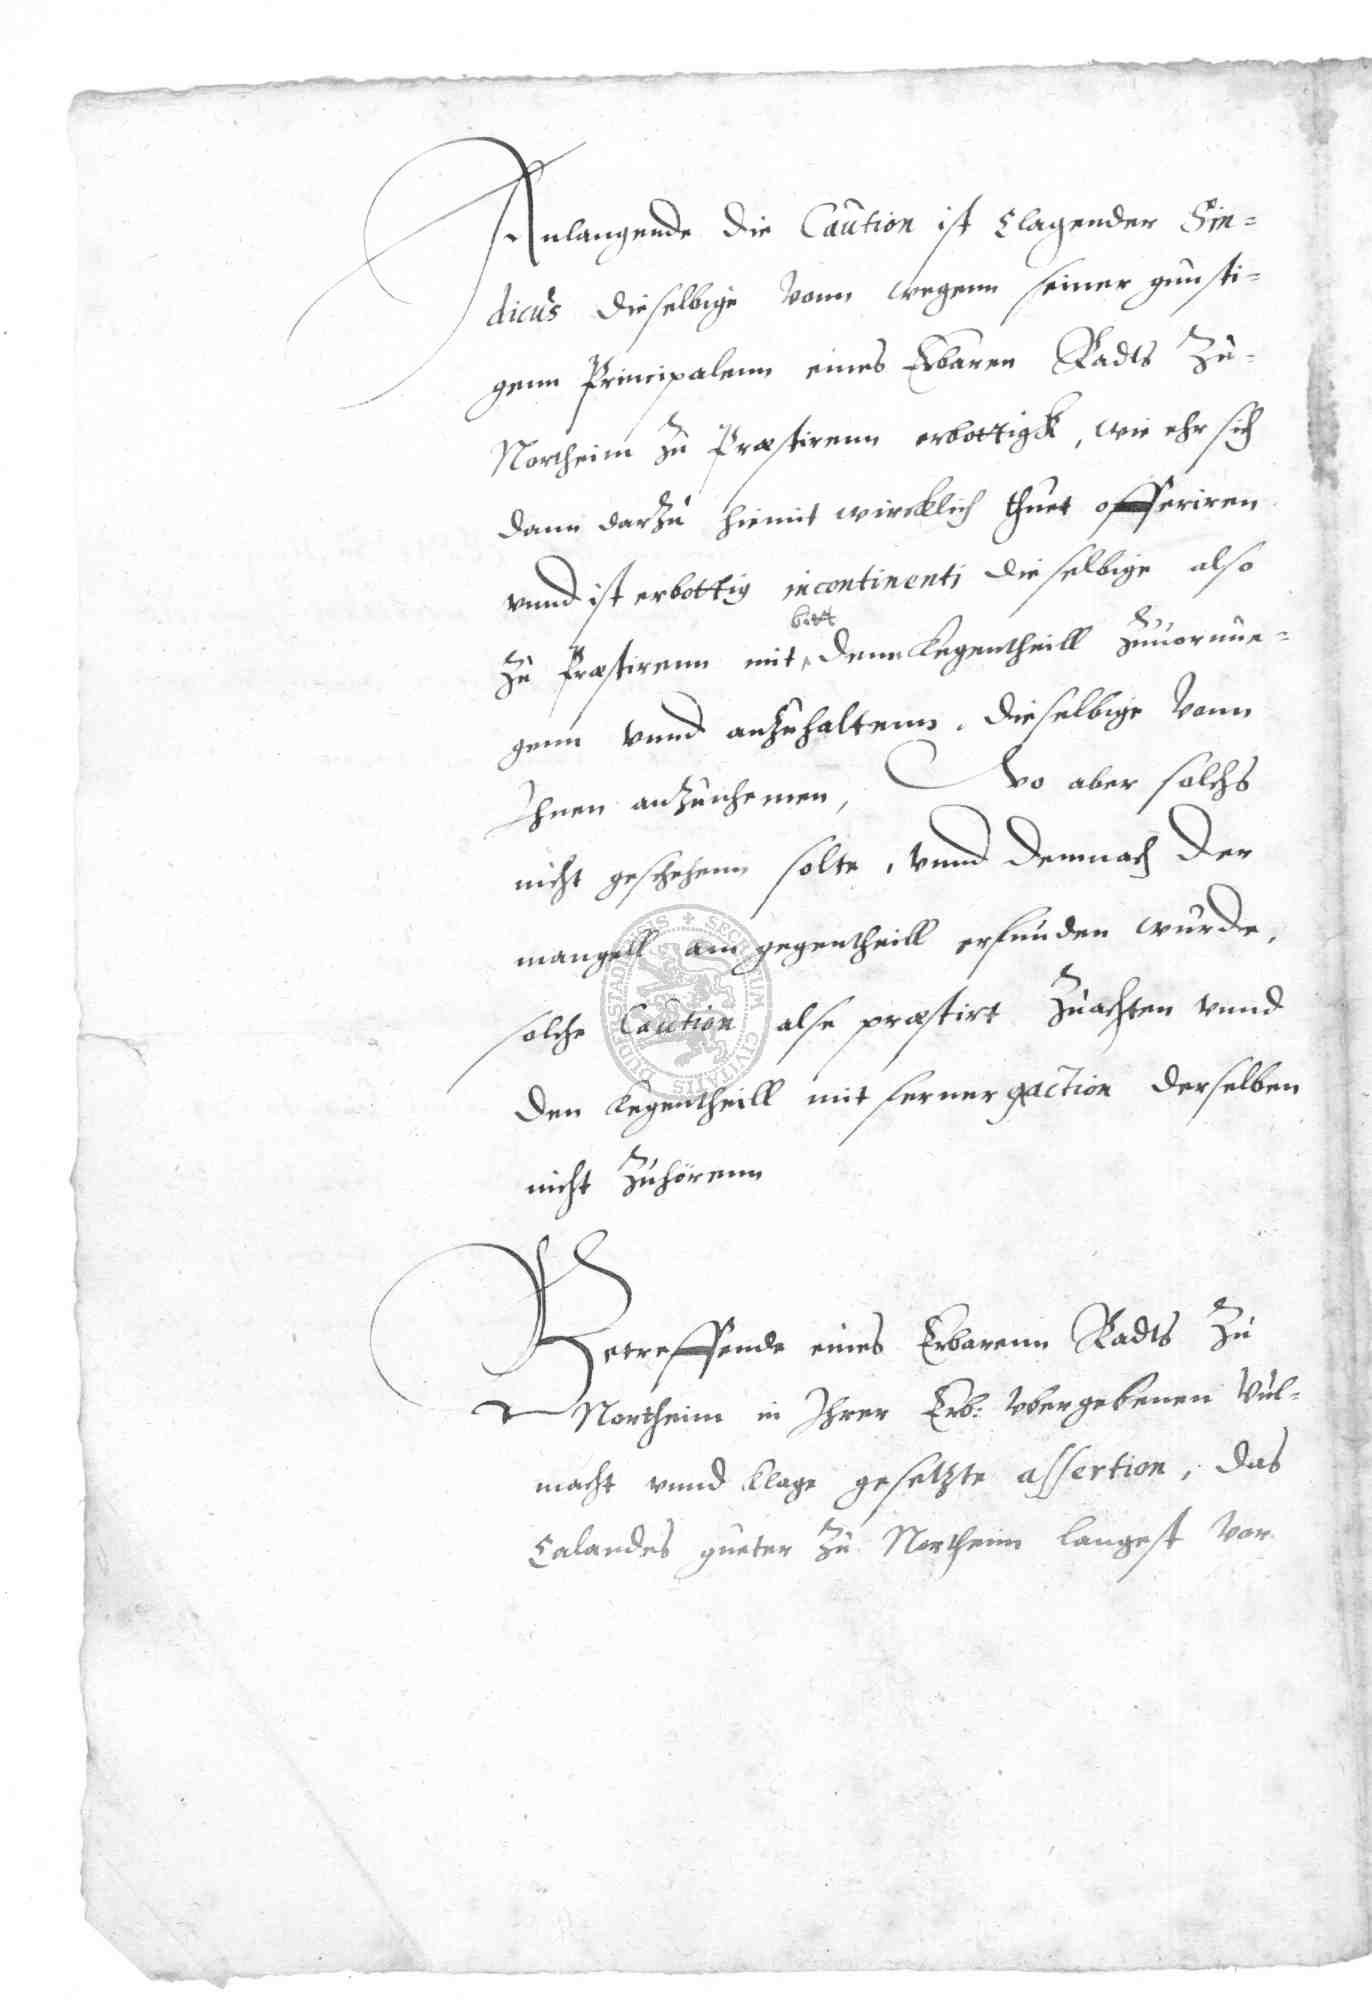 Anlangende die Caution ist Clagender Sin-
dicus dieselbige vonn wegenn seiner gunsti-
genn Principalenn eines Erbaren Radts Zu-
Northeim zu Præstirenn erbottigk, wie ehr sich
dann darzu hiemit wircklich thuet offeriren
vnnd ist erbottig incontinenti dieselbige also
zu Præstirenn mit bitt denn kegentheill zuuormue-
genn vnnd anzuhaltenn, dieselbige vonn
Ihnen anzunhemen, Wo aber solchs
nicht geschehenn solte, vnnd demnach der
mangell am gegentheill erfunden wurde,
solche Caution alse præstirt zuachten vnnd
den kegentheill mit ferner action derselben
nicht zuhörenn
Betreffende eines Erbarenn Radts zu
Northeim in Ihrer Erb: vbergebenen vul-
macht vnnd klage gesetzte assertion, das
Calandes gueter zu Northeim langest vor
SECRETUM CIVITATIS DUDERSTADENSIS